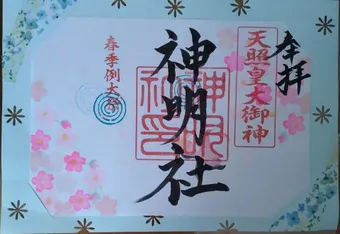 奉拝
天照皇大御神
神明社
神明
社印
春季例大祭